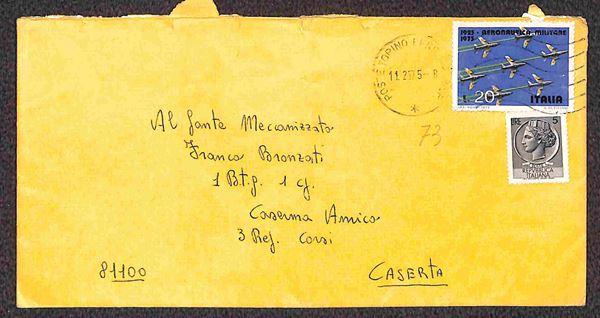 1923 - AERONAUTICA MILITARE
1973
L. 20
ITALIA
POSTE TORINO FERR
11.2.75-8
73
5
REPVBBLICA
ITALIANA
Al Fante Meccanizzato
Franco Bronzati
1 Btg. 1 cj.
Caserma Amico
3 Ref. Corsi
81100
CASERTA